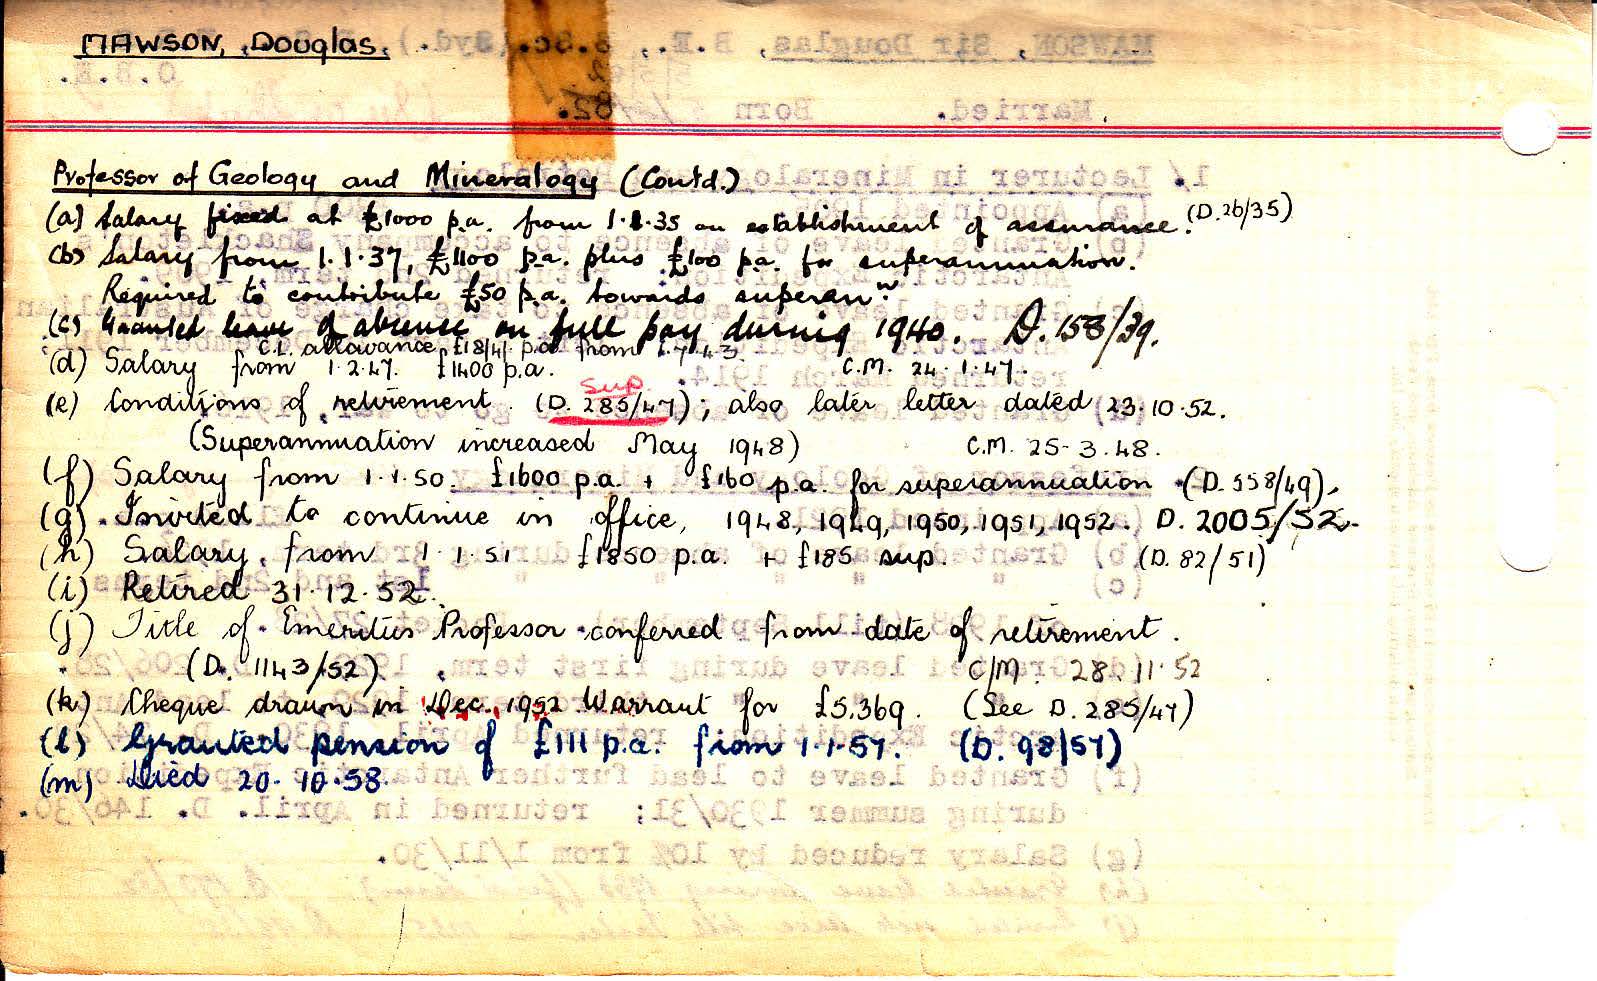 MAWSON, Douglas.
Professor of Geology and Mineralogy (Contd.)
(a) Salary fixed at £1000 p.a. from 1.1.35 on establishment of assurance. (D.26/35)
(b) Salary from 1.1.37, £1100 p.a. plus £100 p.a. for superannuation.
Required to contribute £50 p.a. towards superann.
(c) Granted leave of absence on full pay during 1940. D.158/39.
C.L. allowance £18/4/- p.a. from 1.7.43
(d) Salary from 1.2.47. £1400 p.a. C.M. 24.1.47.
Sup.
(e) Conditions of retirement (D. 285/47); also later letter dated 23.10.52.
(Superannuation increased May 1948) C.M. 25-3.48.
(f) Salary from 1.1.50. £1600 p.a. + £160 p.a. for superannuation. (D.558/49).
(g) Invited to continue in office, 1948, 1949, 1950, 1951, 1952. D. 2005/52.
(h) Salary from 1.1.51 £1850 p.a. + £185 sup. (D. 82/51)
(i) Retired 31.12.52.
(j) Title of Emeritus Professor conferred from date of retirement.
(D. 1143/52) C/M. 28.11.52
(k) Cheque drawn in Dec. 1952 Warrant for £5,369. (See D. 285/47)
(l) Granted pension of £111 p.a. from 1.1.57. (D. 98/57)
(m) Died 20.10.58.